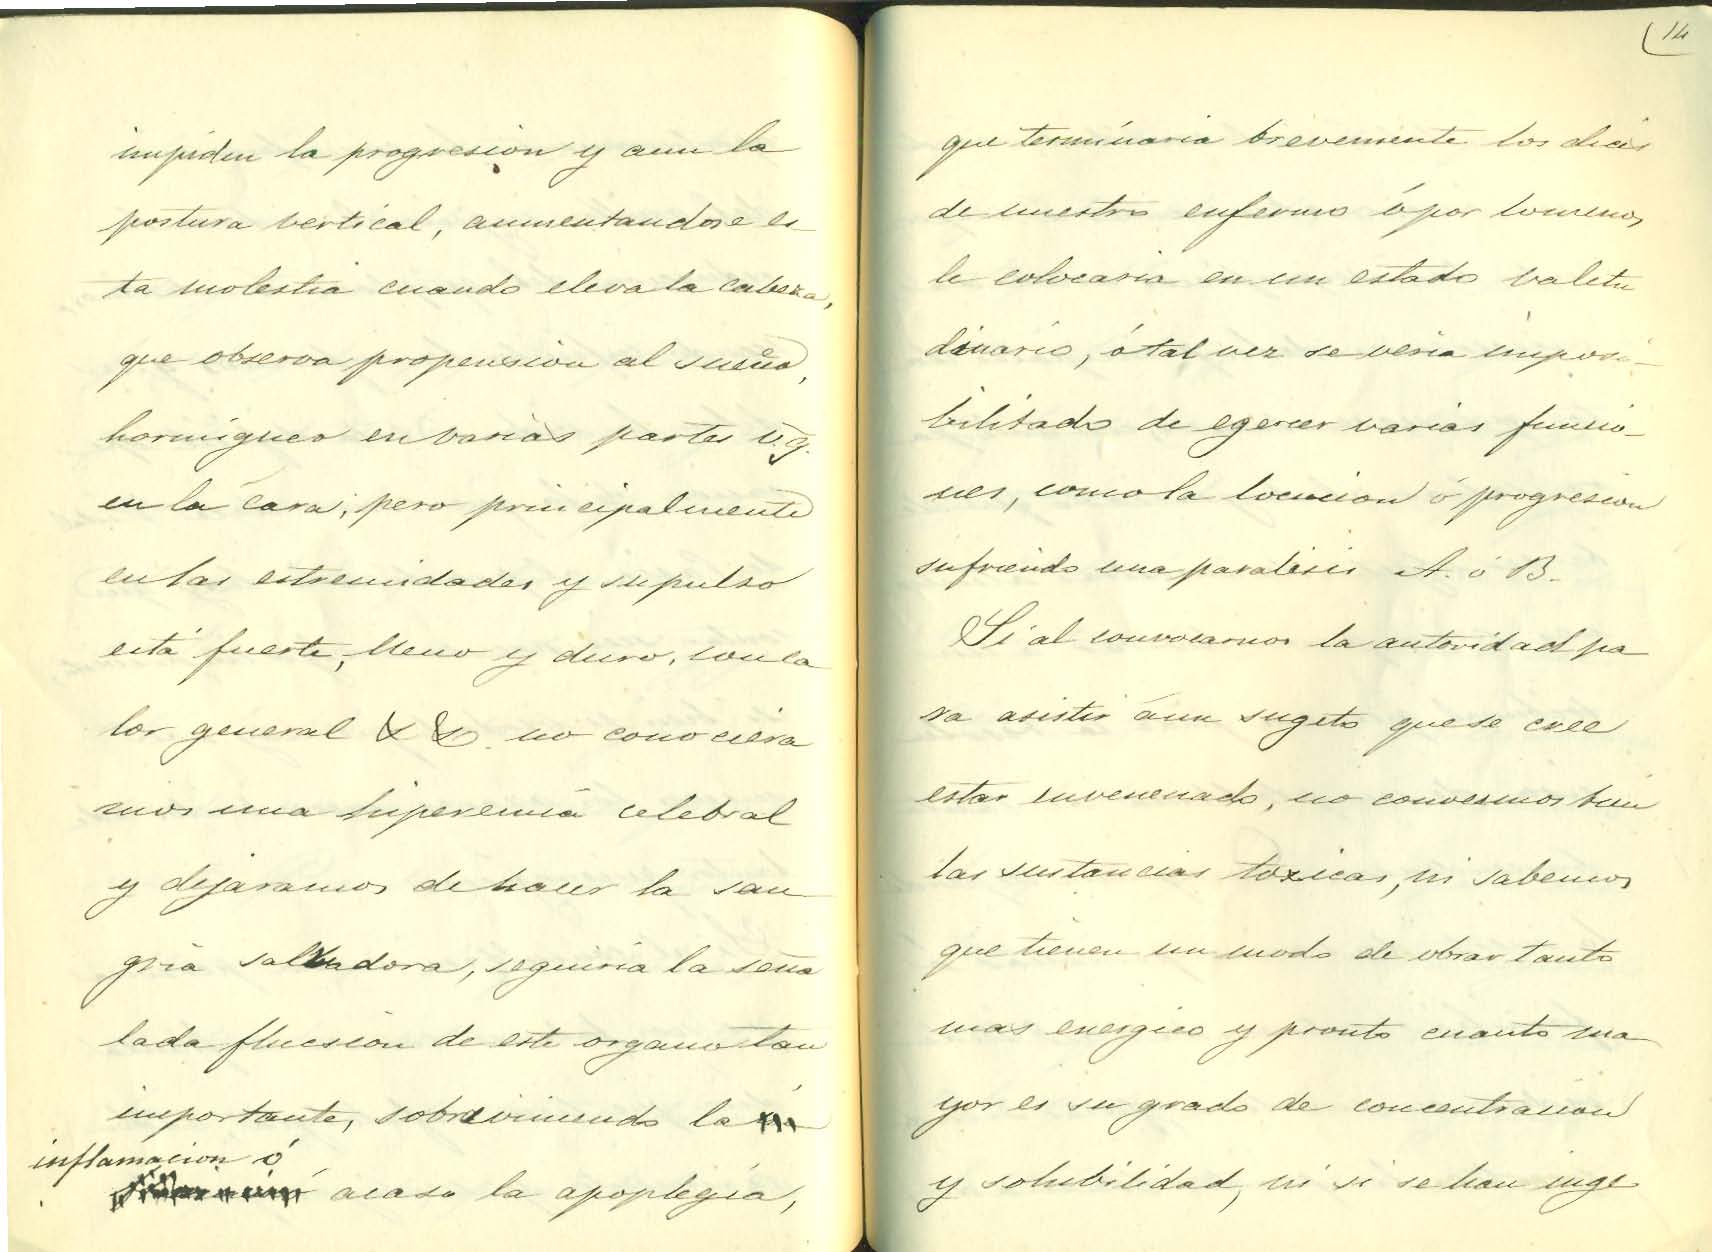 impiden la progresion y aun la
postura vertical, aumentandose es-
ta molestia cuando eleva la cabeza,
que observa propension al sueño,
hormigueo en varias partes v.g.
en la cara; pero principalmente
en las estremidades y su pulso
está fuerte, lleno y duro, con ca
lor general & & no conociera
mos una hiperemia celebral
y dejaramos de hacer la san
gria salvadora, seguiria la seña
lada flucsion de este organo tan
importante, sobreviniendo la
inflamacion ó
acaso la apoplegia,
14
que terminaria brevemente los dias
de nuestro enfermo ó por lo menos
le colocaria en un estado valetu
dinario, ó tal vez se veria imposi-
bilitado de egercer varias funcio-
nes, como la locucion ó progresion
sufriendo una paralisis A. ó B.
Si al convocarnos la autoridad pa
ra asistir á un sugeto que se cree
estar envenenado, no conocemos bien
las sustancias toxicas, ni sabemos
que tienen un modo de obrar tanto
mas energico y pronto cuanto ma
yor es su grado de concentracion
y solubilidad, ni si se han inge